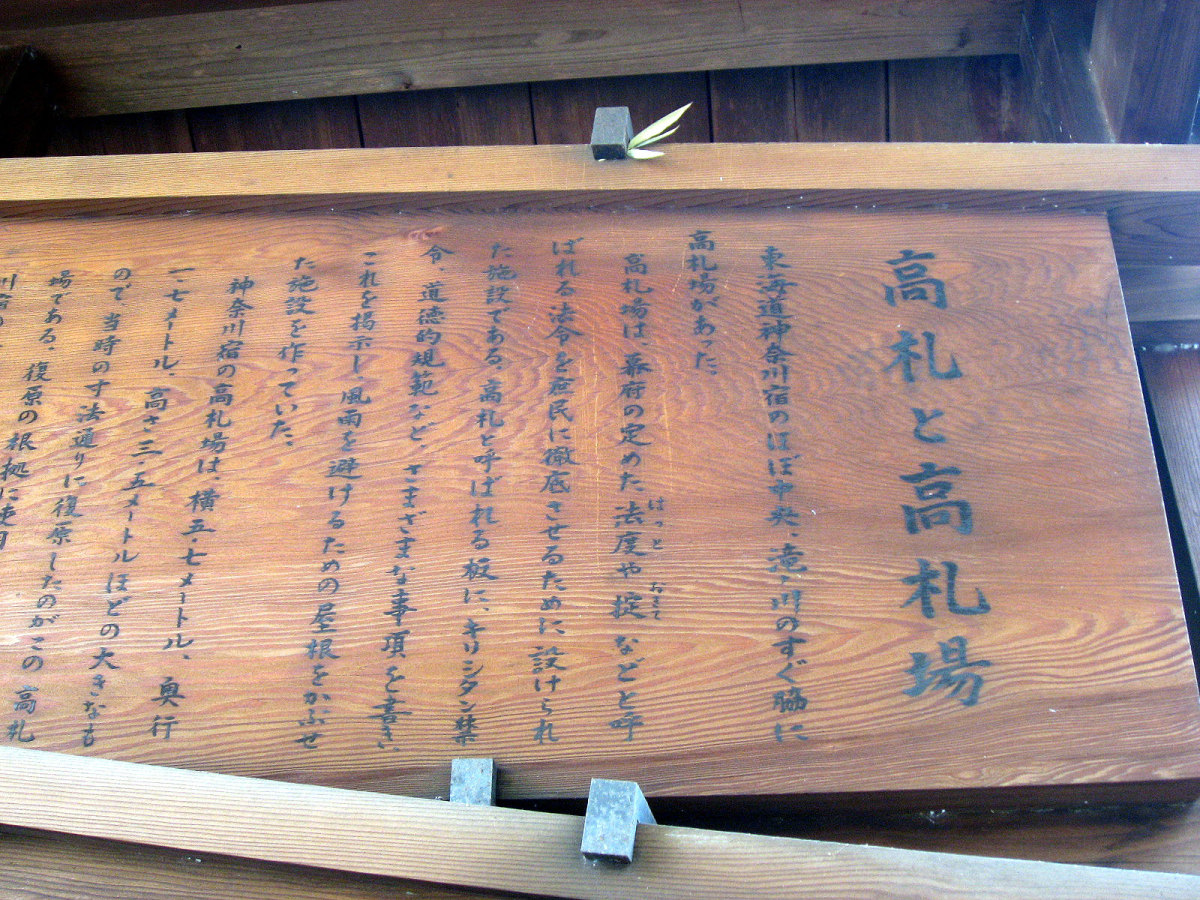 高札と高札場
東海道神奈川宿のほぼ中央、滝ノ川のすぐ脇に
高札場があった。
高札場は、幕府の定めた法度や掟などと呼
はっと
おきて
ばれる法令を庶民に徹底させるために設けられ
た施設である。高札と呼ばれる板に、キリシタン禁
令、道徳的規範など、さまざまな事項を書き、
これを掲示し風雨を避けるための屋根をかぶせ
た施設を作っていた。
神奈川宿の高札場は、横五・七メートル、奥行
一・七メートル、高さ三・五メートルほどの大きなも
ので、当時のす法通りに復原したのがこの高札
場である。復原の根拠に使用
川宿